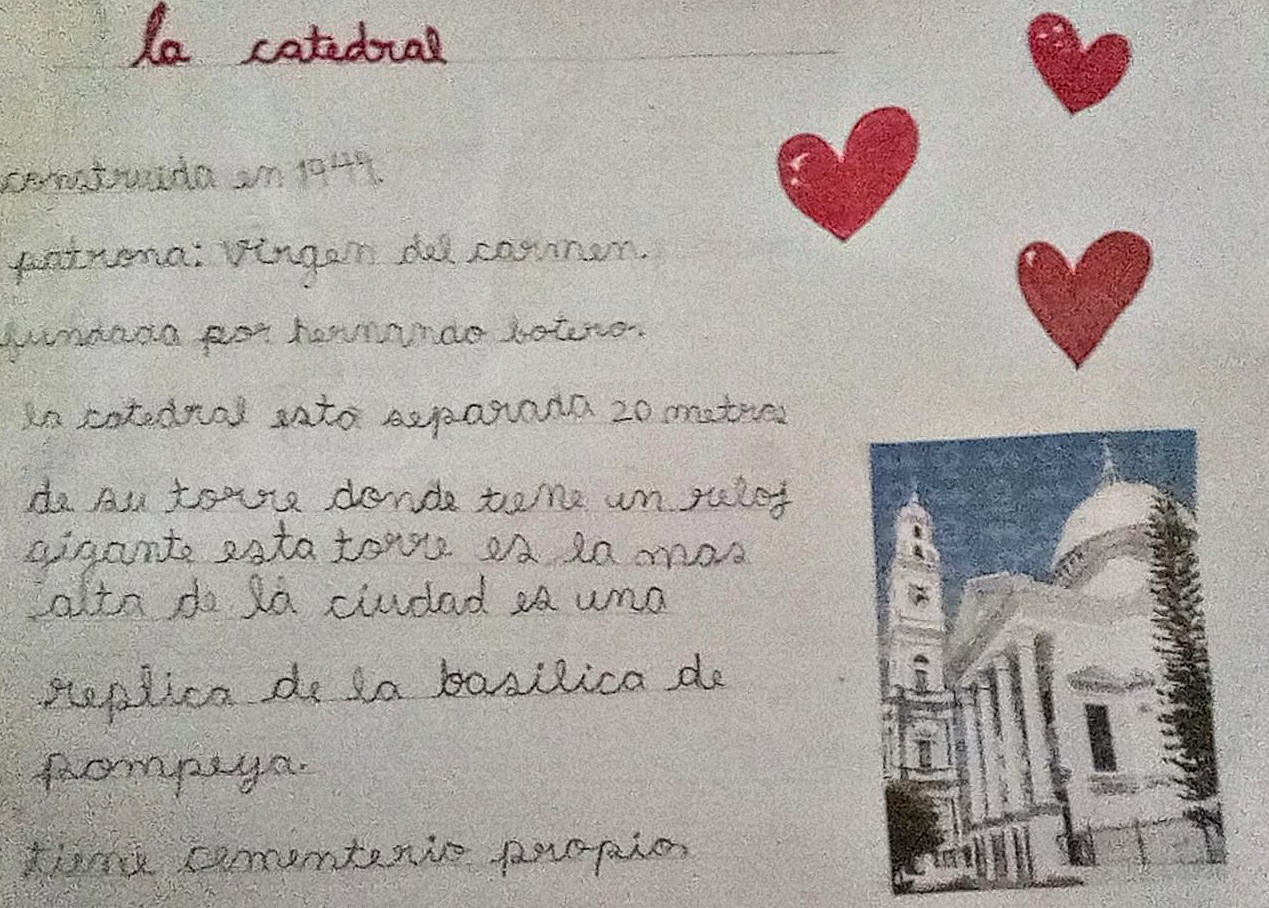 la catedral
construida en 1944.
patrona: virgen del carmen.
fundada por hernando botero.
la catedral esta separada 20 metros
de su torre donde tiene un reloj
gigante esta torre es la mas
alta de la ciudad es una
replica de la basilica de
pompeya.
tiene cementerio propio.